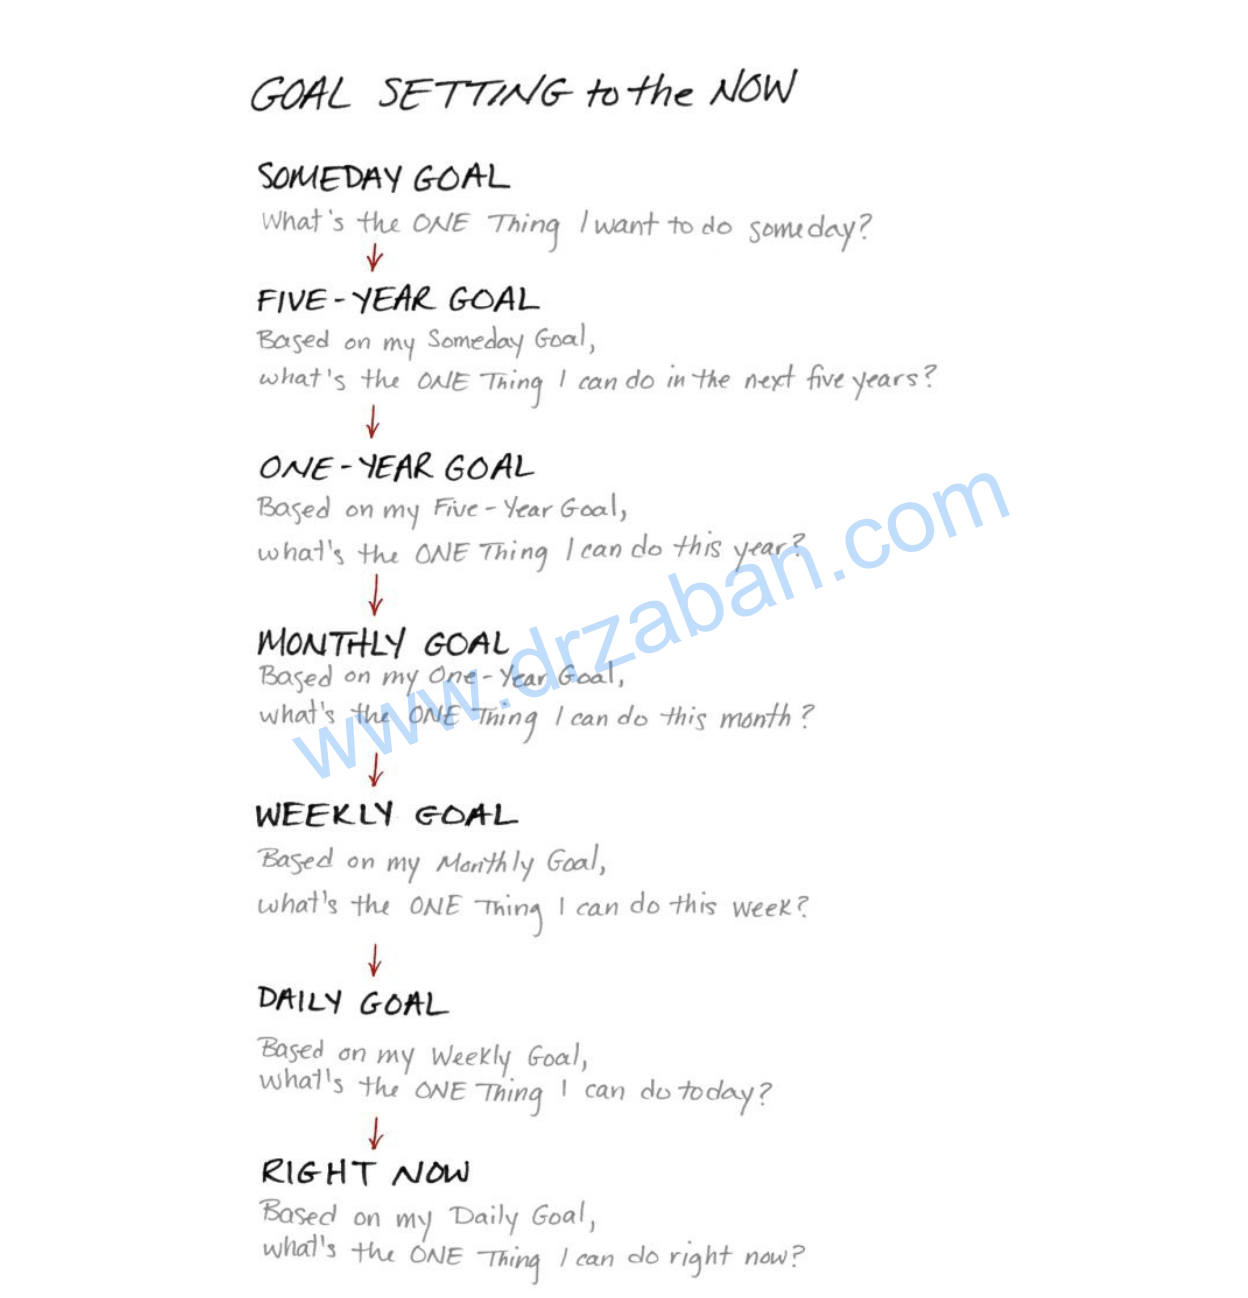 GOAL SETTING to the NOW
SOMEDAY GOAL
What's the ONE Thing I want to do someday?
FIVE-YEAR GOAL
Based on my Someday Goal,
what's the ONE Thing I can do in the next five years?
ONE-YEAR GOAL
Based on my Five-Year Goal,
what's the ONE Thing I can do this year?
MONTHLY GOAL
Based on my One-Year Goal,
what's the ONE Thing I can do this month?
WEEKLY GOAL
Based on my Monthly Goal,
what's the ONE Thing I can do this week?
DAILY GOAL
Based on my Weekly Goal,
what's the ONE Thing I can do today?
RIGHT NOW
Based on my Daily Goal,
what's the ONE Thing I can do right now?
www.drzaban.com